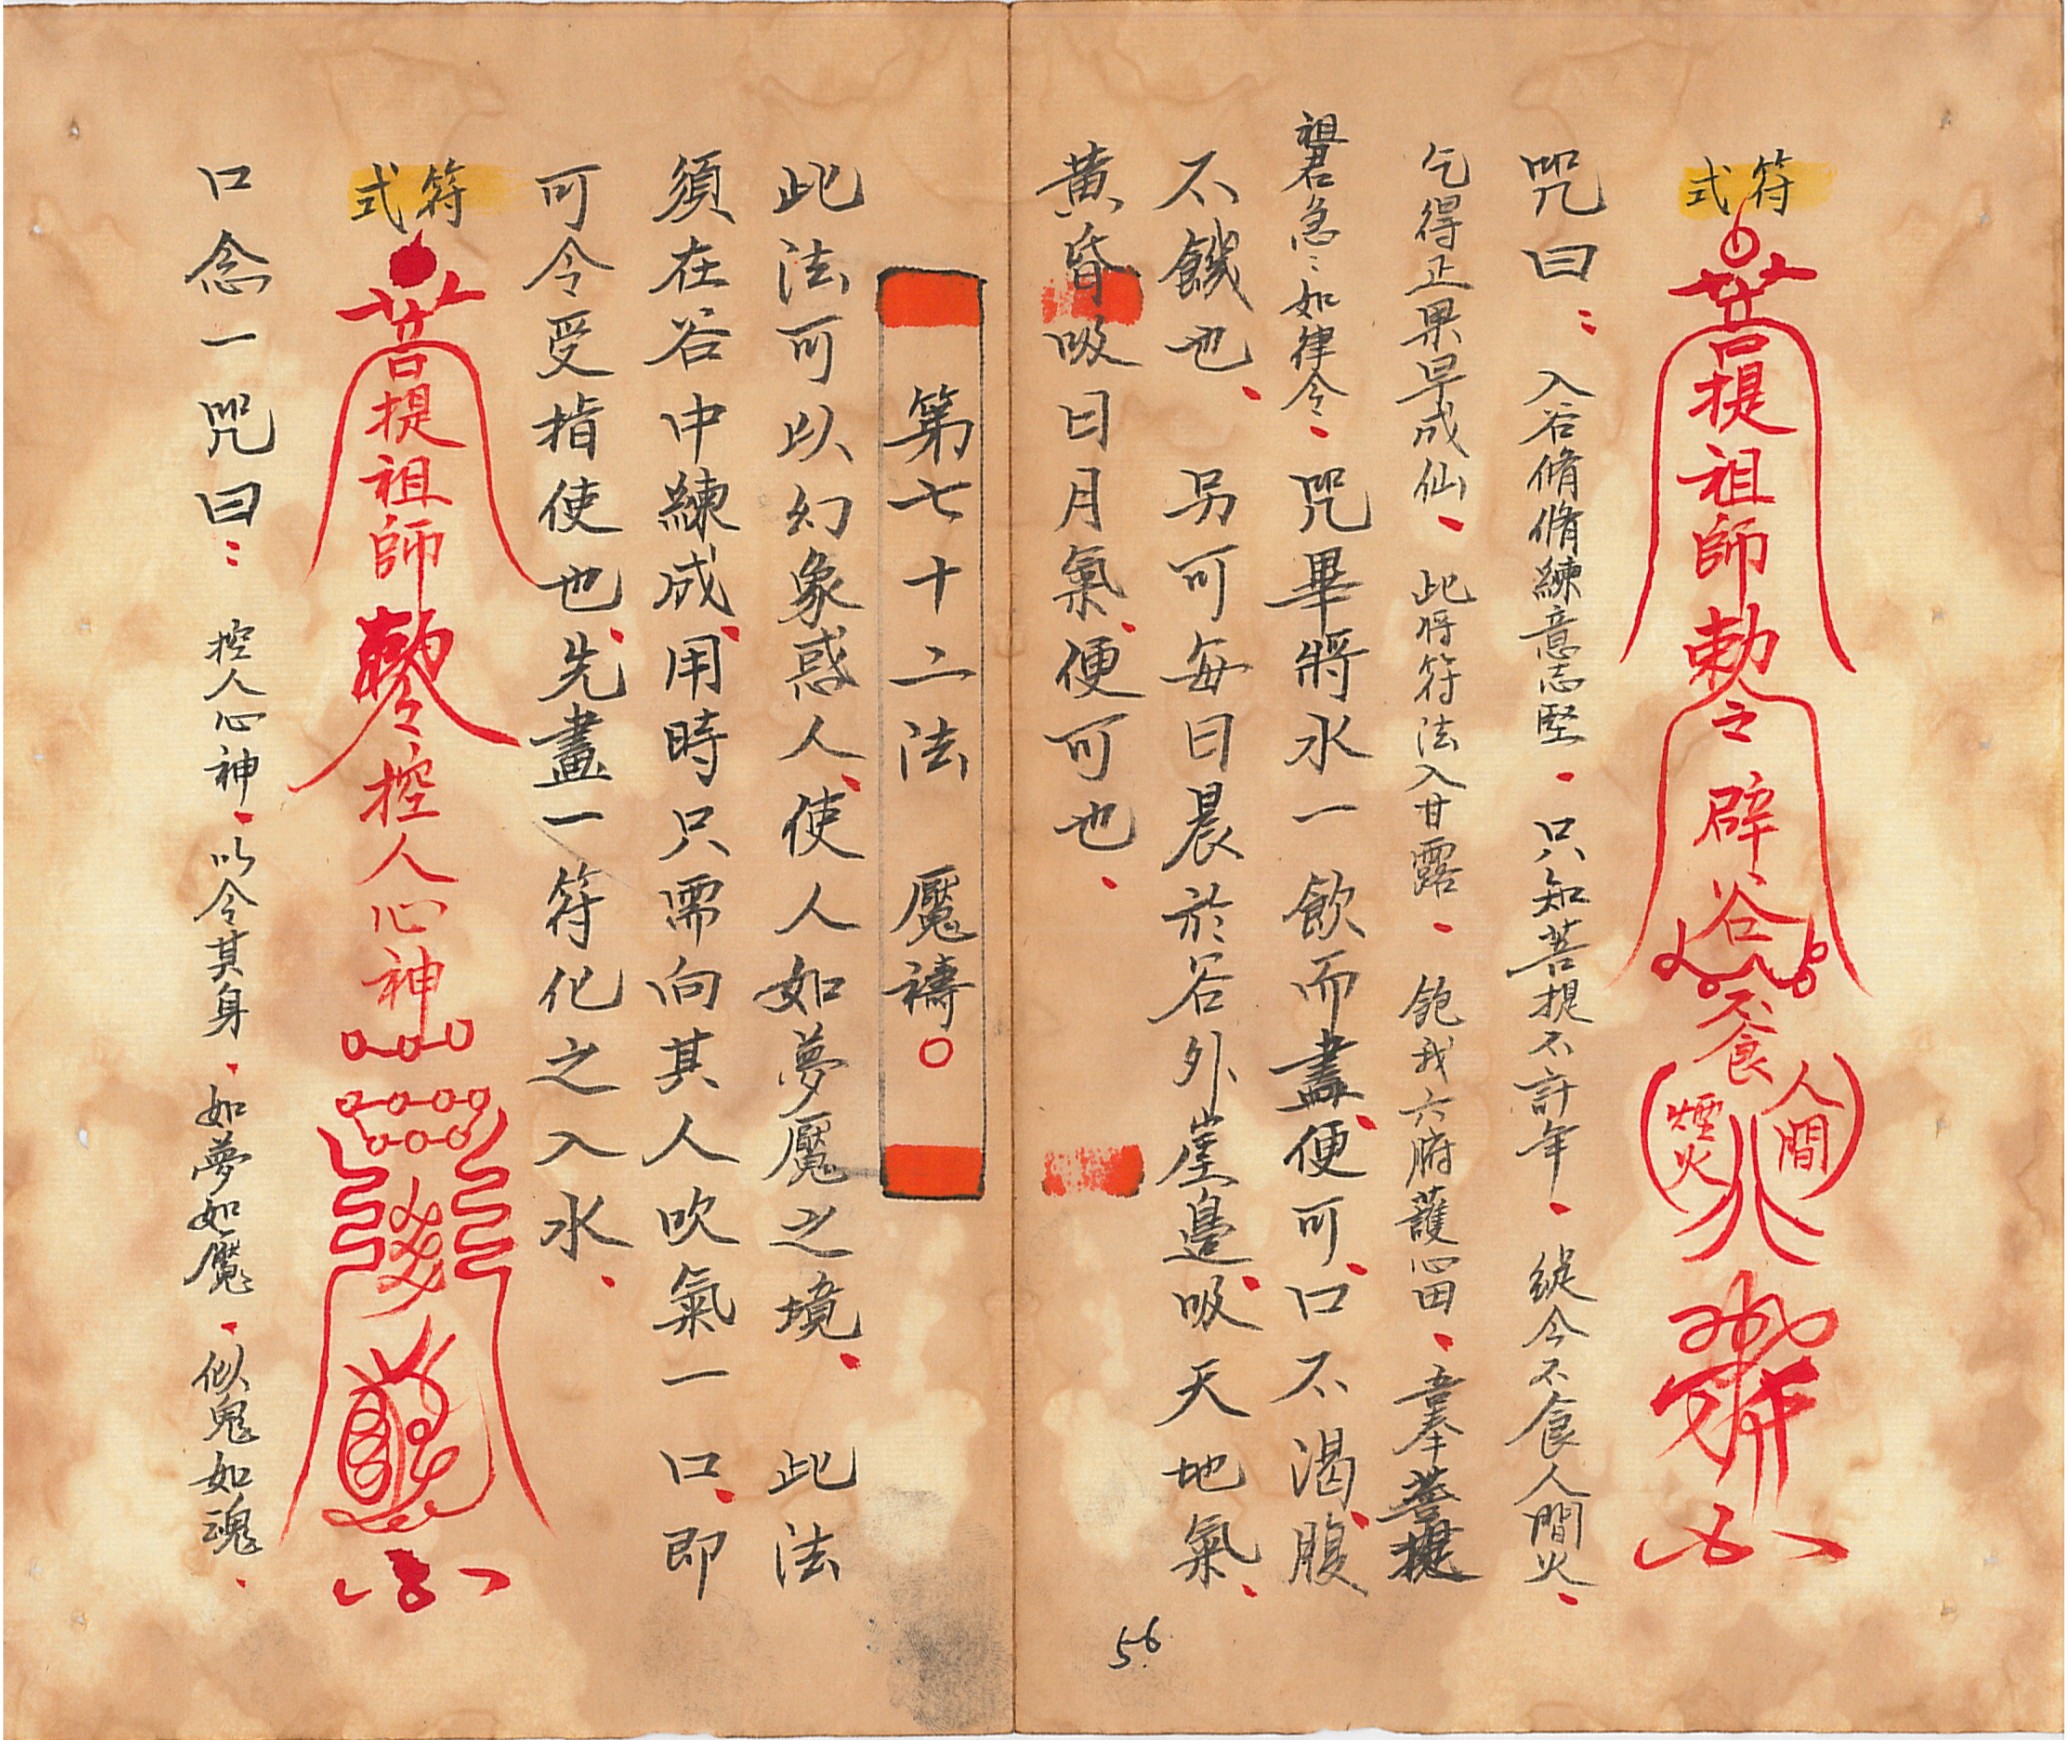 符式
菩提祖師勅令辟谷不食人間煙火
咒曰：入谷脩脩練意志堅、只知菩提不計年、縱令不食人間火、
乞得正果早成仙、此將符法入甘露、飽我六腑護心田、吾奉菩提
祖君急：如律令、咒畢將水一飲而盡、便可、口不渴、腹
不餓也、另可每日晨於谷外崖邊、吸天地氣、
黄昏吸日月氣、便可也、
56
第七十二法　魘禱○
此法可以幻象惑人、使人如夢魘之境、此法
須在谷中練成、用時只需向其人吹氣一口、即
可令受指使也、先畫一符化之入水、
符式
菩提祖師勅令控人心神
口念一咒曰：控人心神、以令其身、如夢如魘、似鬼如魂、